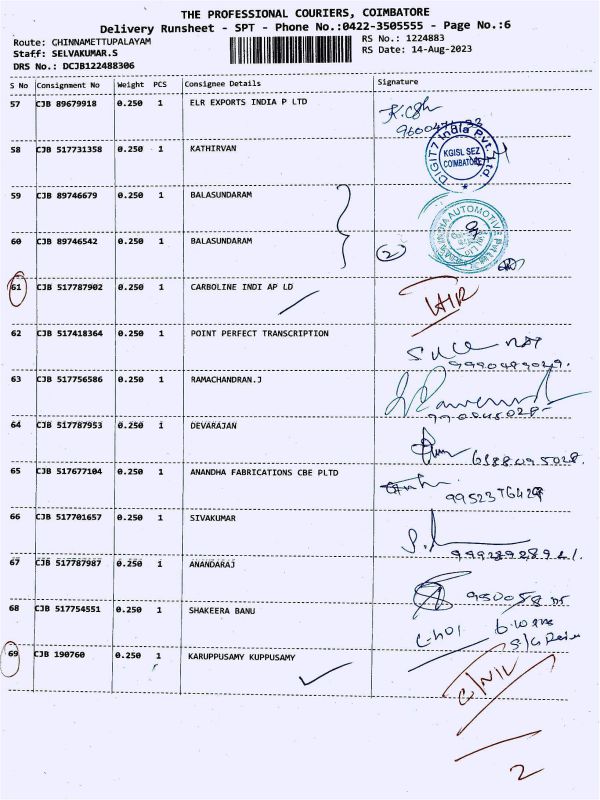 THE PROFESSIONAL COURIERS, COIMBATORE
Delivery Runsheet - SPT - Phone No.:0422-3505555 - Page No.:6
Route: CHINNAMETTUPALAYAM
RS No.: 1224883
Staff: SELVAKUMAR.S
RS Date: 14-Aug-2023
DRS No.: DCJB122488306
S No Consignment No Weight PCS Consignee Details Signature
57 CJB 89679918 0.250 1 ELR EXPORTS INDIA P LTD
58 CJB 517731358 0.250 1 KATHIRVAN
DIGIT7 India Pvt. Ltd
KGISL SEZ
COIMBATORE
59 CJB 89746679 0.250 1 BALASUNDARAM
60 CJB 89746542 0.250 1 BALASUNDARAM
2
61 CJB 517787902 0.250 1 CARBOLINE INDI AP LD
62 CJB 517418364 0.250 1 POINT PERFECT TRANSCRIPTION
63 CJB 517756586 0.250 1 RAMACHANDRAN.J
64 CJB 517787953 0.250 1 DEVARAJAN
65 CJB 517677104 0.250 1 ANANDHA FABRICATIONS CBE PLTD
66 CJB 517701657 0.250 1 SIVAKUMAR
67 CJB 517787987 0.250 1 ANANDARAJ
68 CJB 517754551 0.250 1 SHAKEERA BANU
69 CJB 190760 0.250 1 KARUPPUSAMY KUPPUSAMY
2